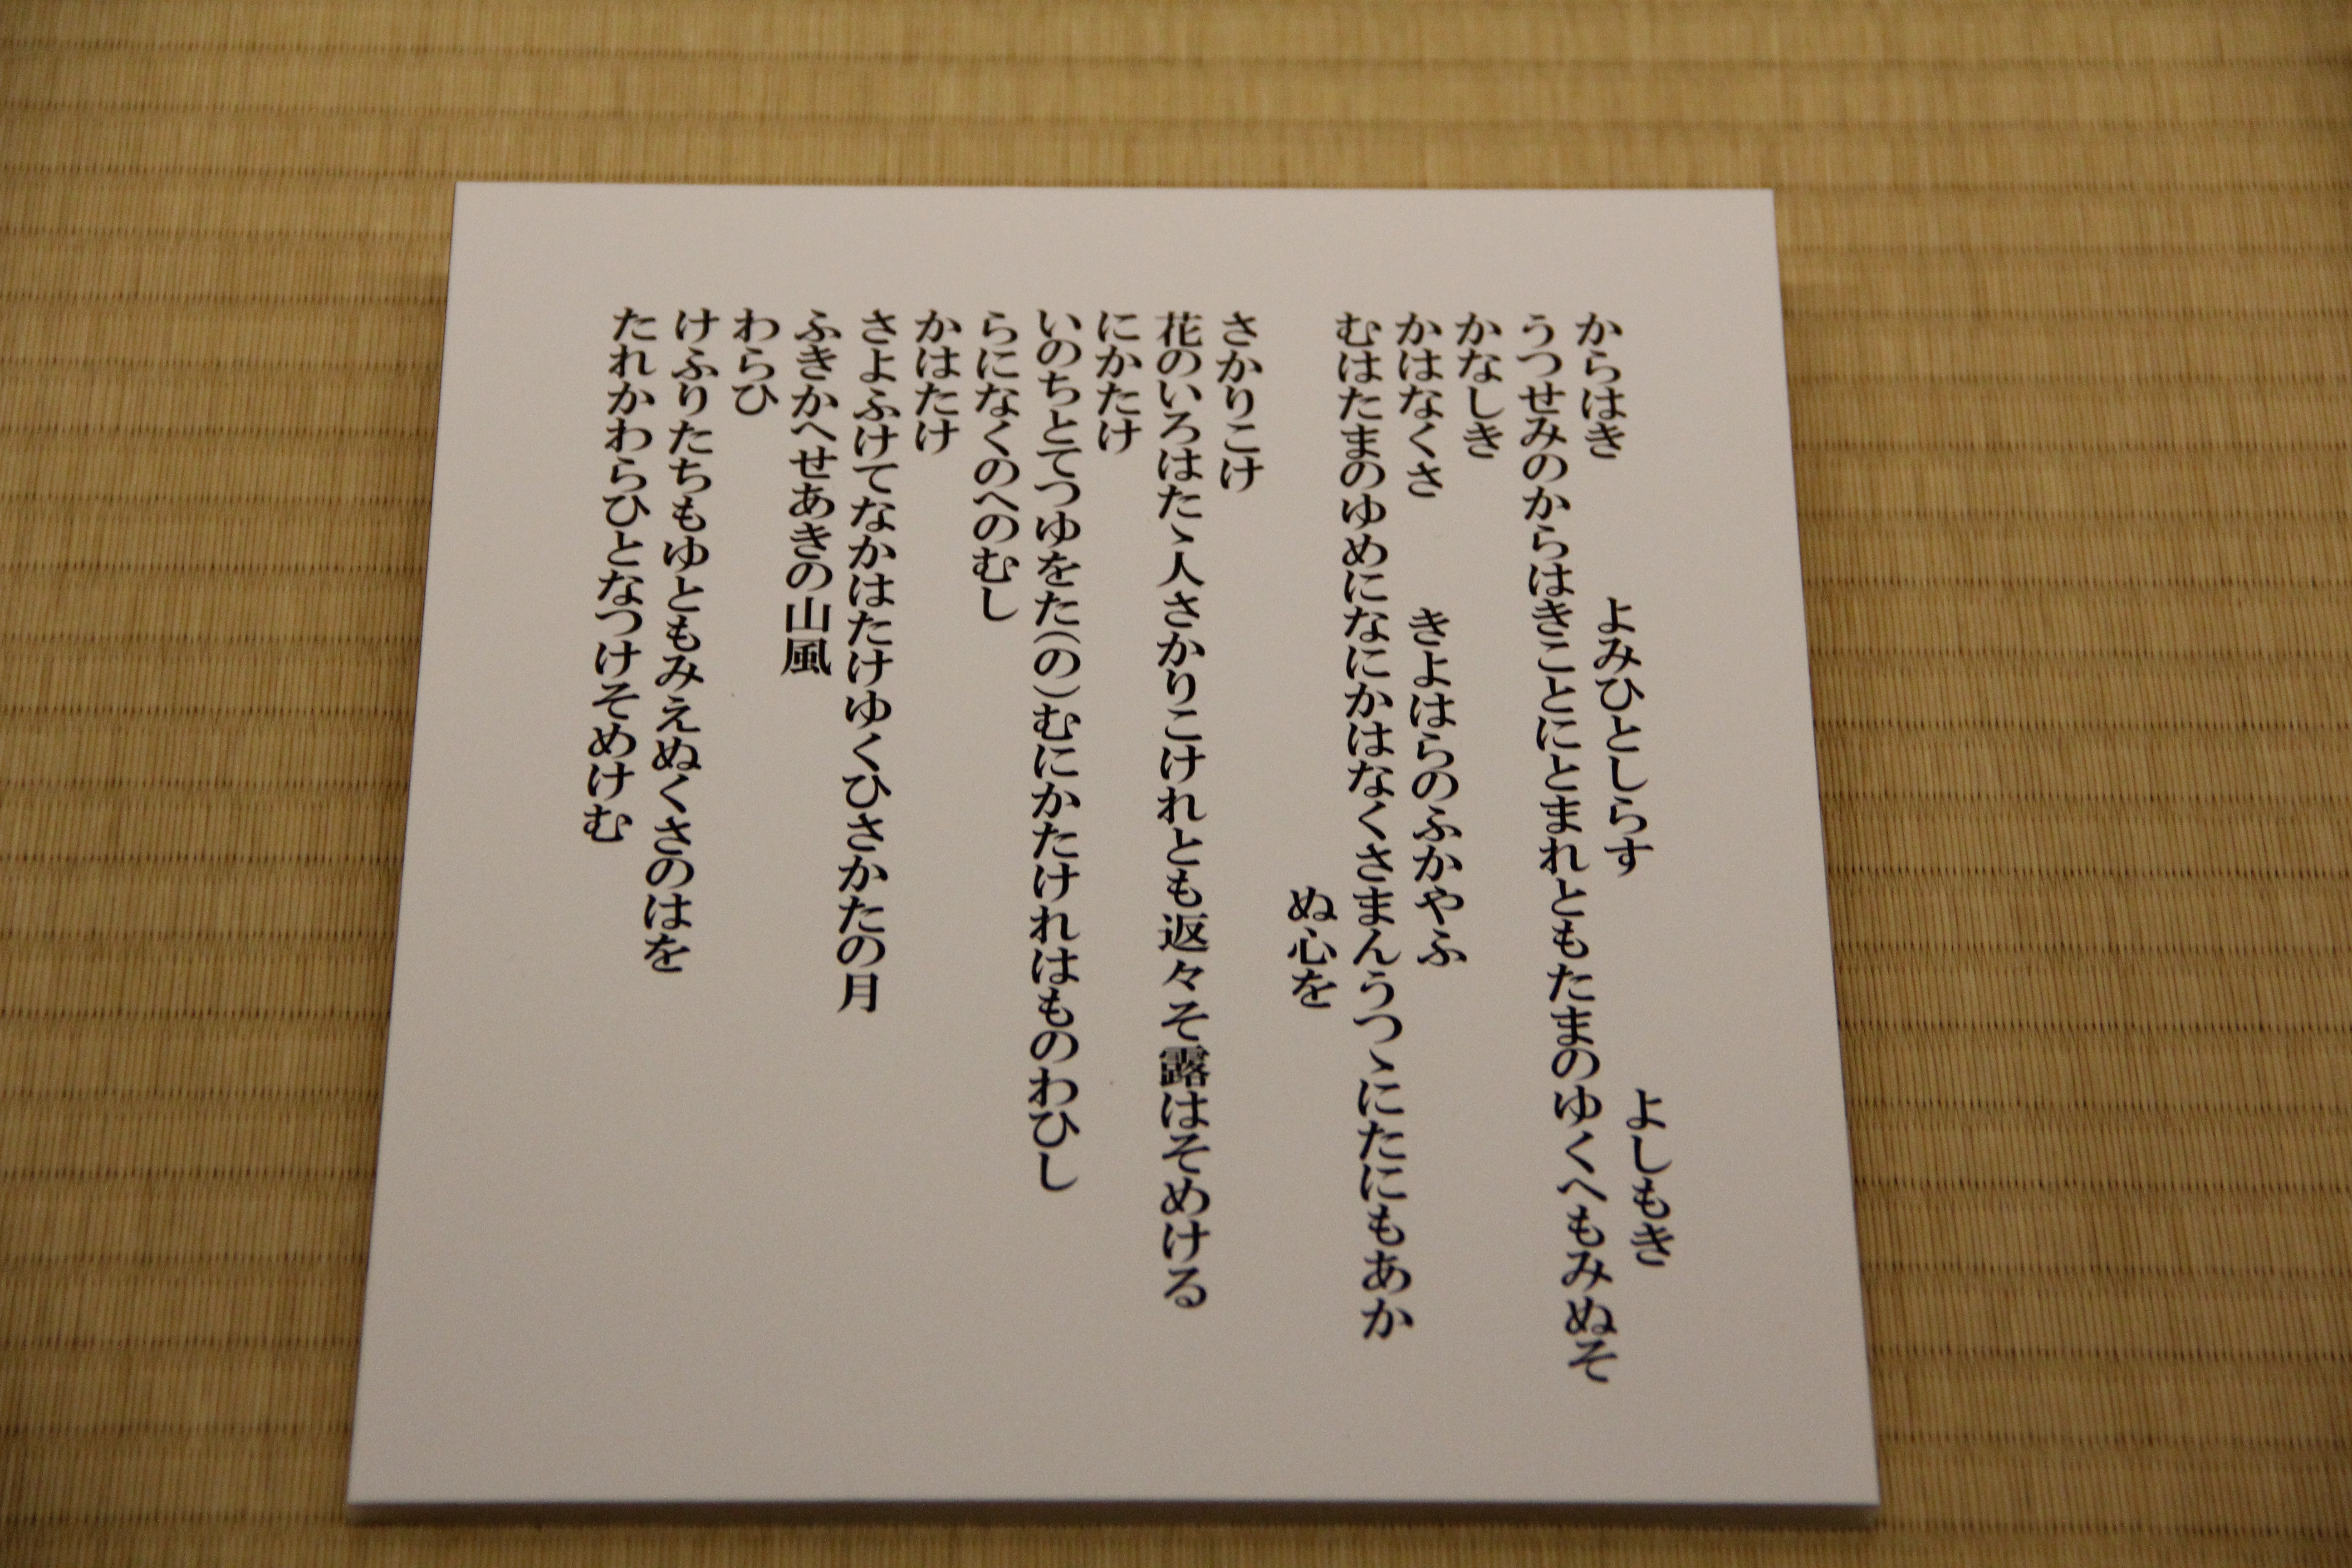 よしもき
からはき　よみひとしらす
うつせみのからはきことにとまれともたまのゆくへもみぬそ
かなしき
かはなくさ　きよはらのふかやふ
むはたまのゆめになにかはなくさまんうつゝにたにもあか
ぬ心を
さかりこけ
花のいろはたゝ人さかりこけれとも返々そ露はそめける
にかたけ
いのちとてつゆをた(の)むにかたけれはものわひし
らになくのへのむし
かはたけ
さよふけてなかはたけゆくひさかたの月
ふきかへせあきの山風
わらひ
けふりたちもゆともみえぬくさのはを
たれかわらひとなつけそめけむ